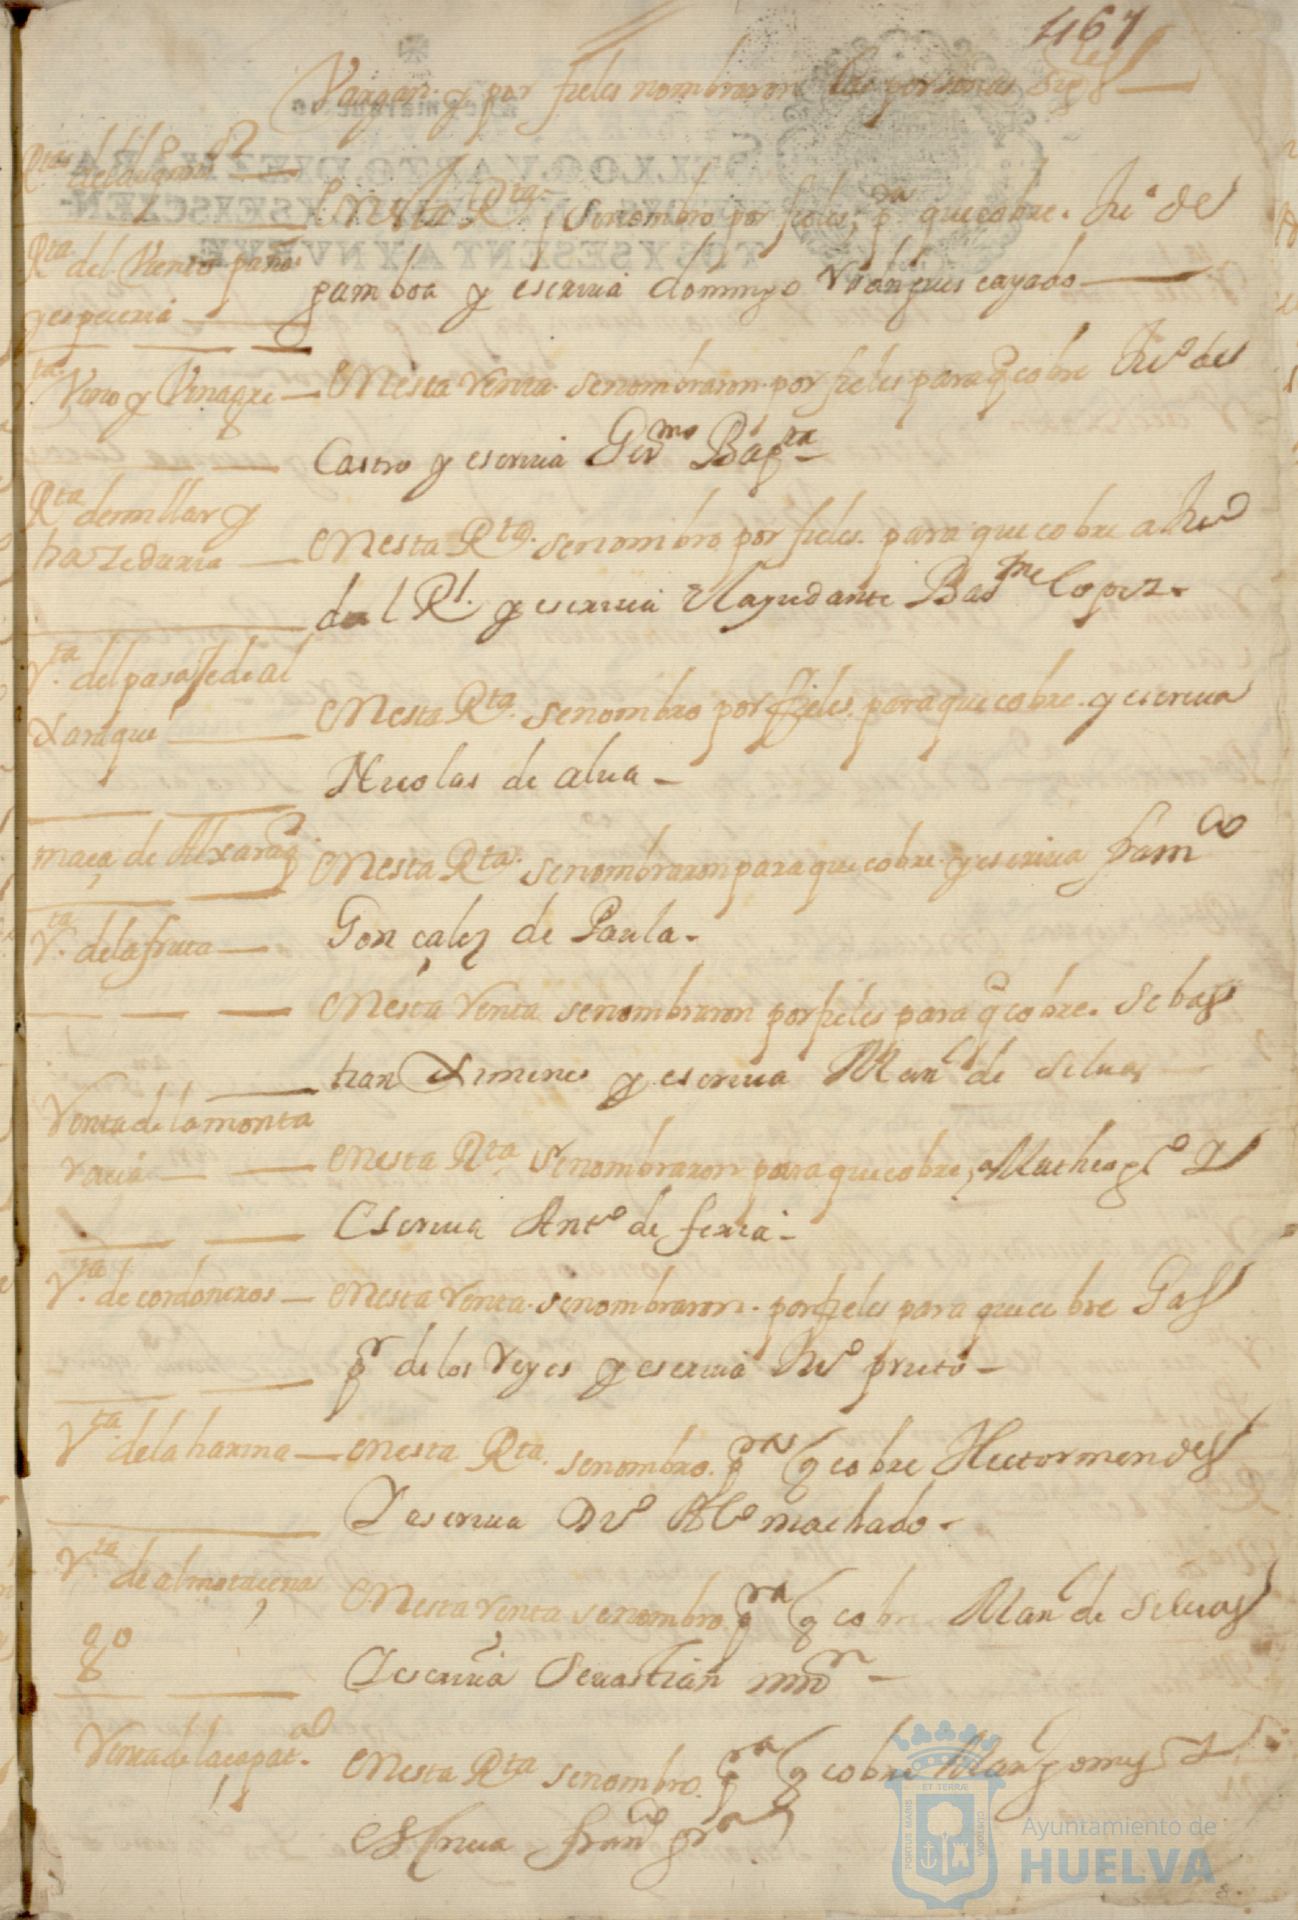 467
Vargas. y por fieles nombraron las personas sigtes
Rta del Viento paños
y especeria
Enesta Rta se nombro por fieles, pa que cobre. Juº de
gamboa y escriuia domingo Vranques cayado
Vta Vino y Vinagre
Enesta Renta. se nombraron. por fieles para q cobre Juº de
Castro y escriuia Germo Bapta
Rta de millar y
hazeduria
Enesta Rta. se nombro por fieles. para que cobre a Juº
del Rl. y escriuia el ayudante Barme Lopez.
Rta. del pasaje de al
xaraque
Enesta Rta. se nombro por fieles. para que cobre. y escriua
Nicolas de alua
maça de Alxaraq
Enesta Rta. se nombraron para que cobre. y escriua franco
Gonçalez de Paula.
Rta. de la fruta
Enesta Renta se nombraron por fieles para q cobre. Sebas
tian Ximenes y escriua Manl de Seluas
Renta de la monta
racia
Enesta Rta se nombraron para que cobre, Matheo
Escriua Anto de feria
Rta. de cordoneros
Enesta Renta. se nombraron. por fieles para que cobre Gas
pr de los Reyes y escriuia Juº prieto
Rta de la harina
enesta Rta. se nombro. pra q cobre Hector mendes
Y escriua Dgo Alo machado
Rta de almotaçenia
Enesta Renta se nombro pra q cobre Manl de Seluas
Y escriuia Seuastian mrn
Renta de la
Enesta Rta se nombro. pra q cobre Man gomes Y
escriua franco
PORTUS MARIS ET TERRÆ CUSTODIA
Ayuntamiento de
HUELVA